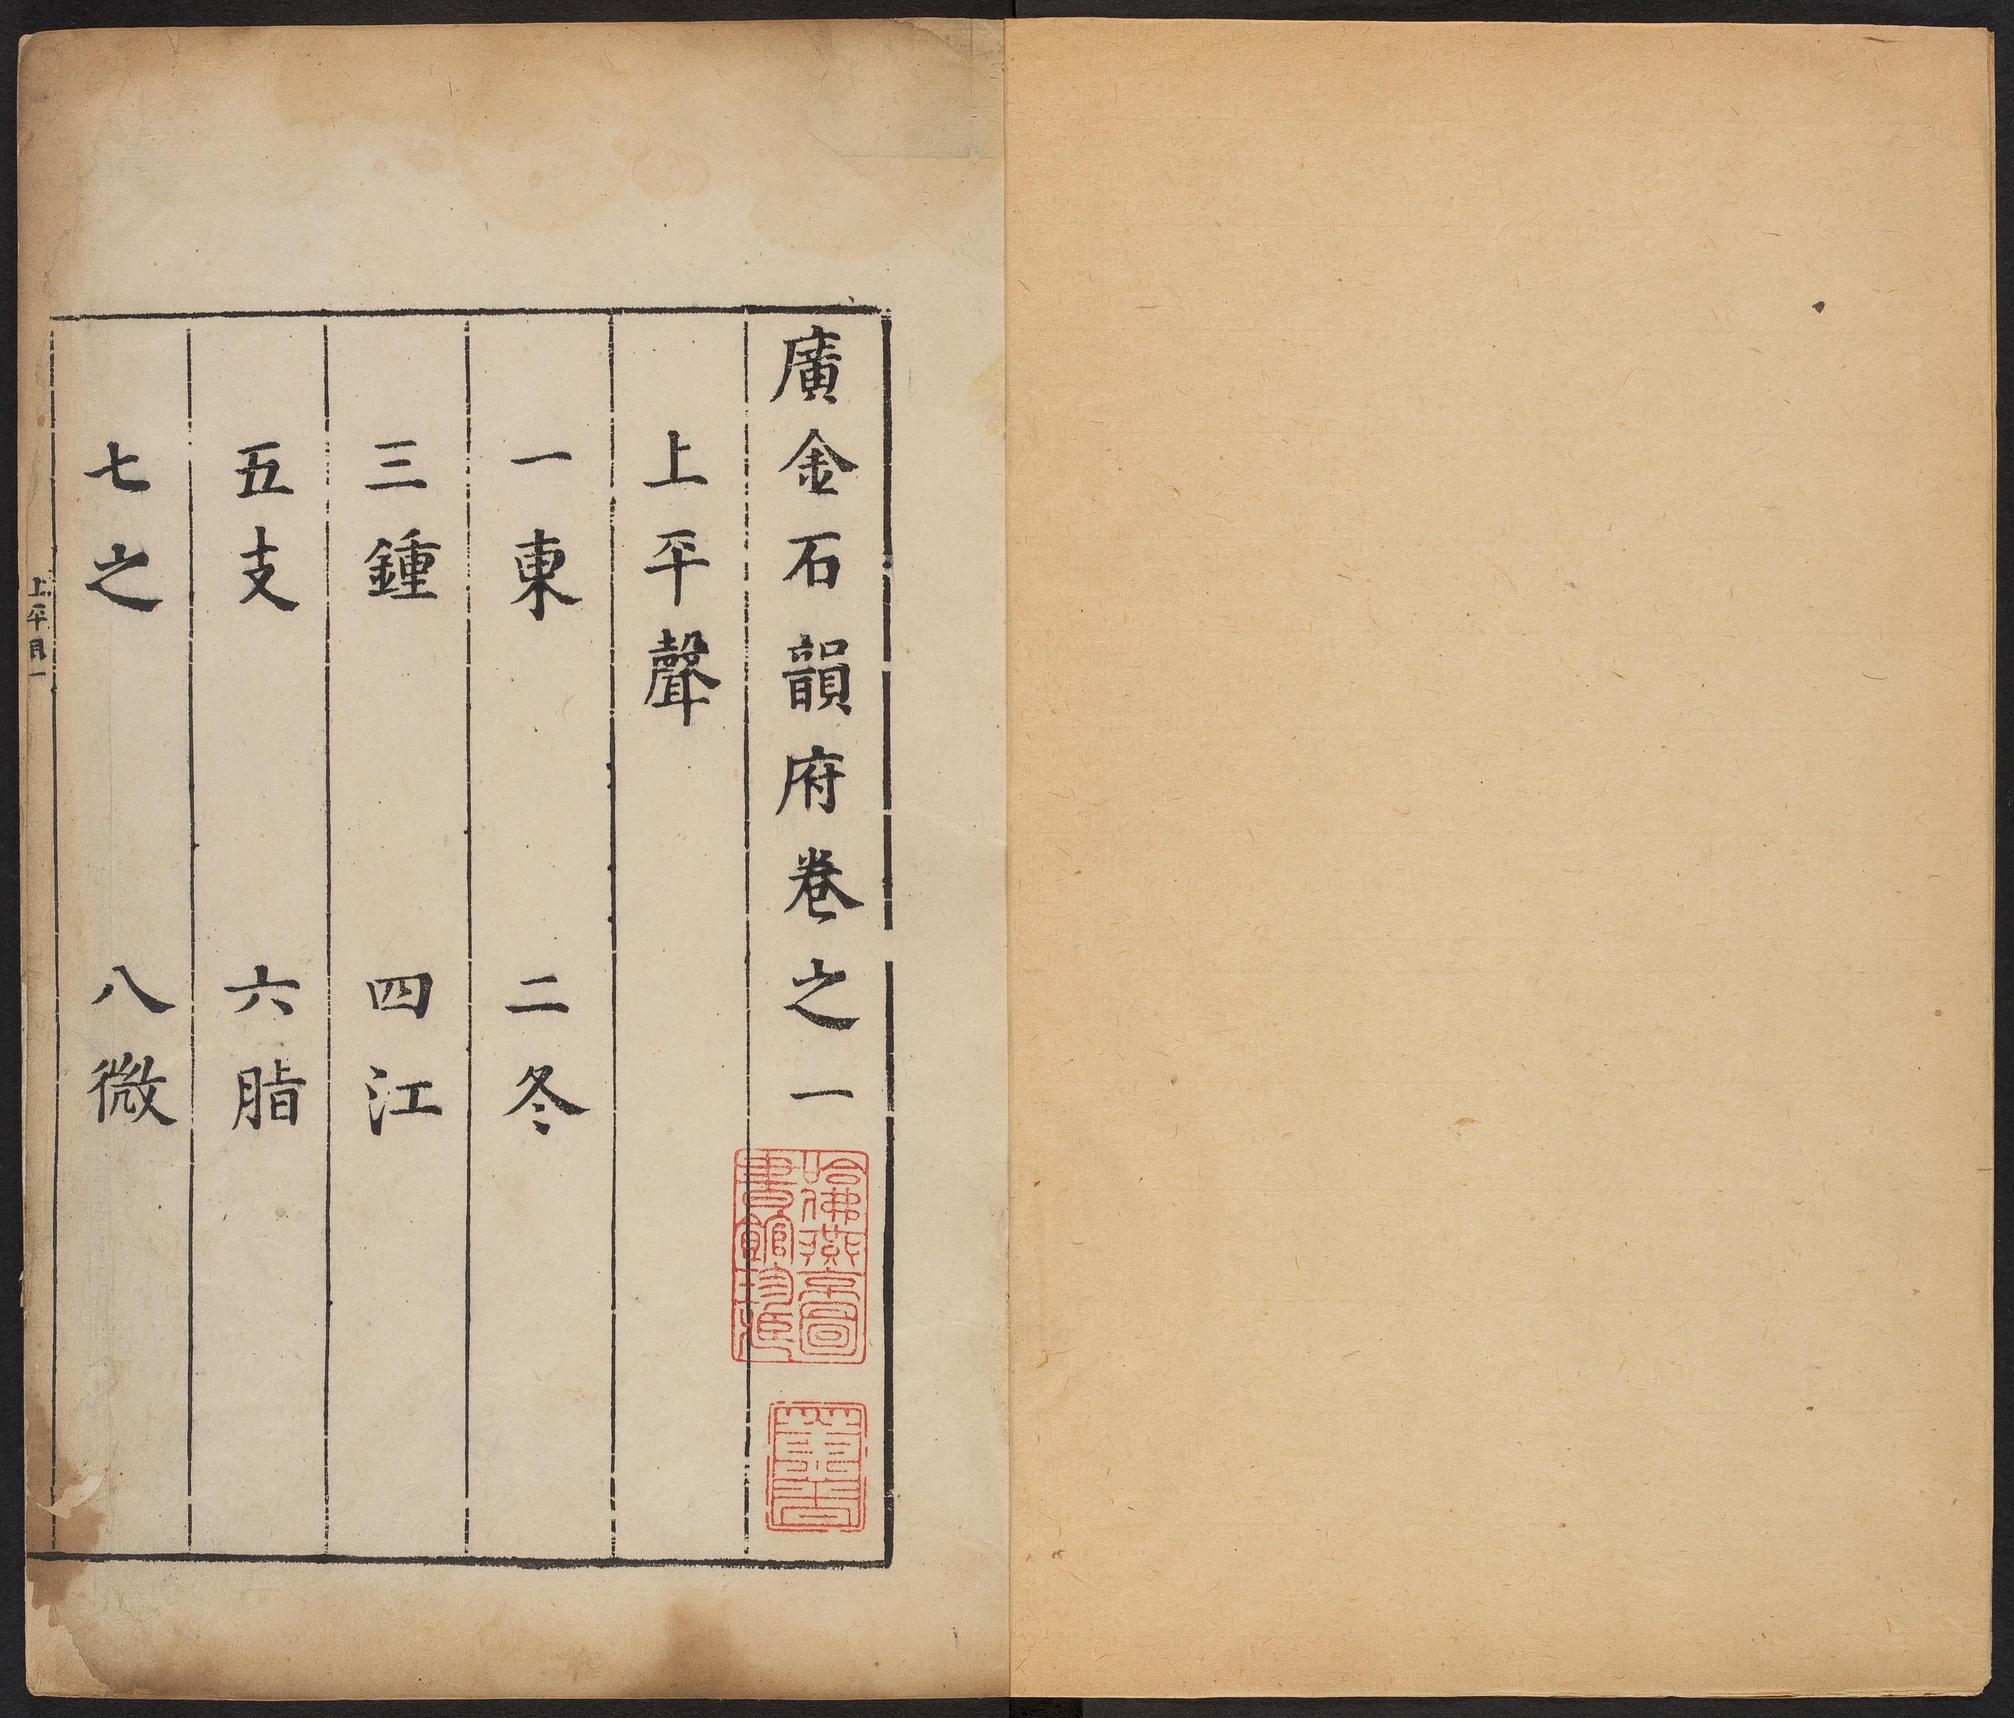 廣金石韻府卷之一
上平聲
一東 二冬
三鍾 四江
五支 六脂
七之 八微
上平目一
哈佛燕京圖
書館珍藏